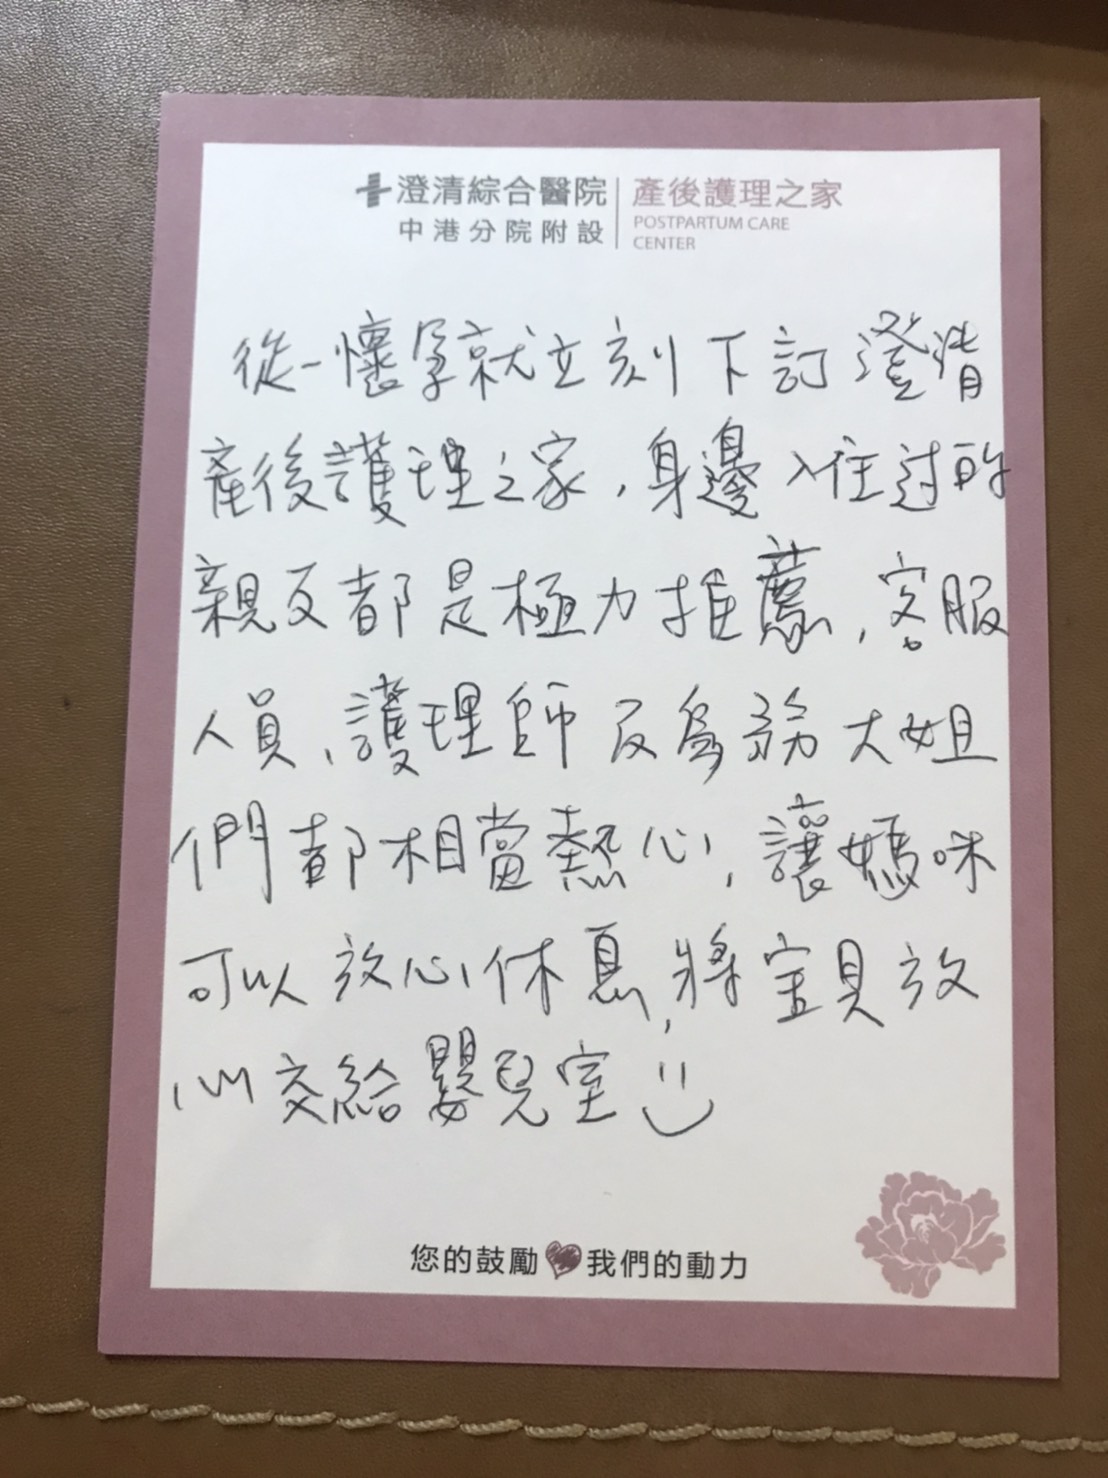 澄清綜合醫院
中港分院附設
產後護理之家
POSTPARTUM CARE
CENTER
從一懷孕就立刻下訂澄清
產後護理之家,身邊入住过的
親友都是極力推薦,客服
人員、護理師及為務大姐
們都相當熱心,讓媽咪
可以放心休息,將宝貝放
心交給嬰兒室
您的鼓勵 我們的動力